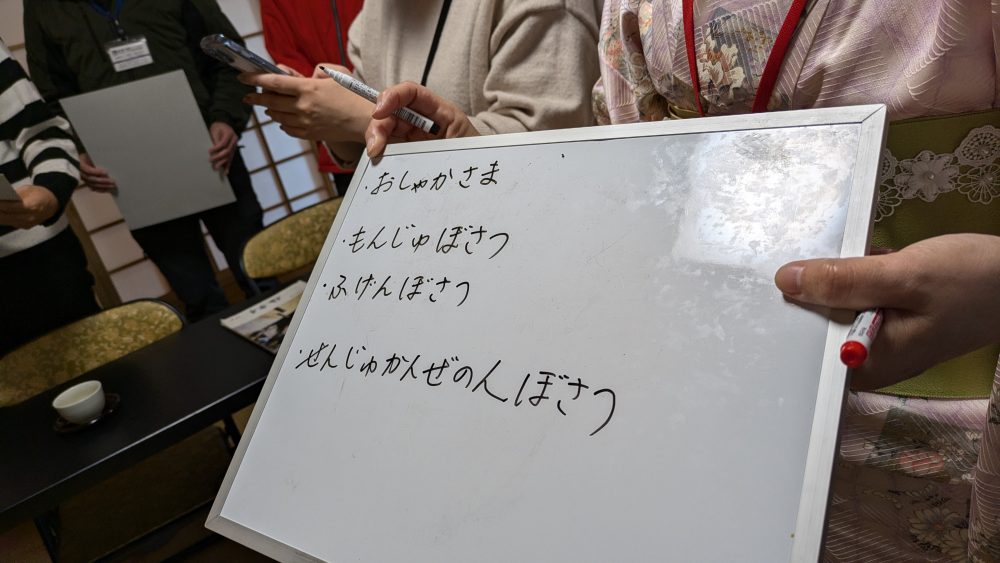 ・おしゃかさま
・もんじゅぼさつ
・ふげんぼさつ
・ぜんじゅかんぜのんぼさつ